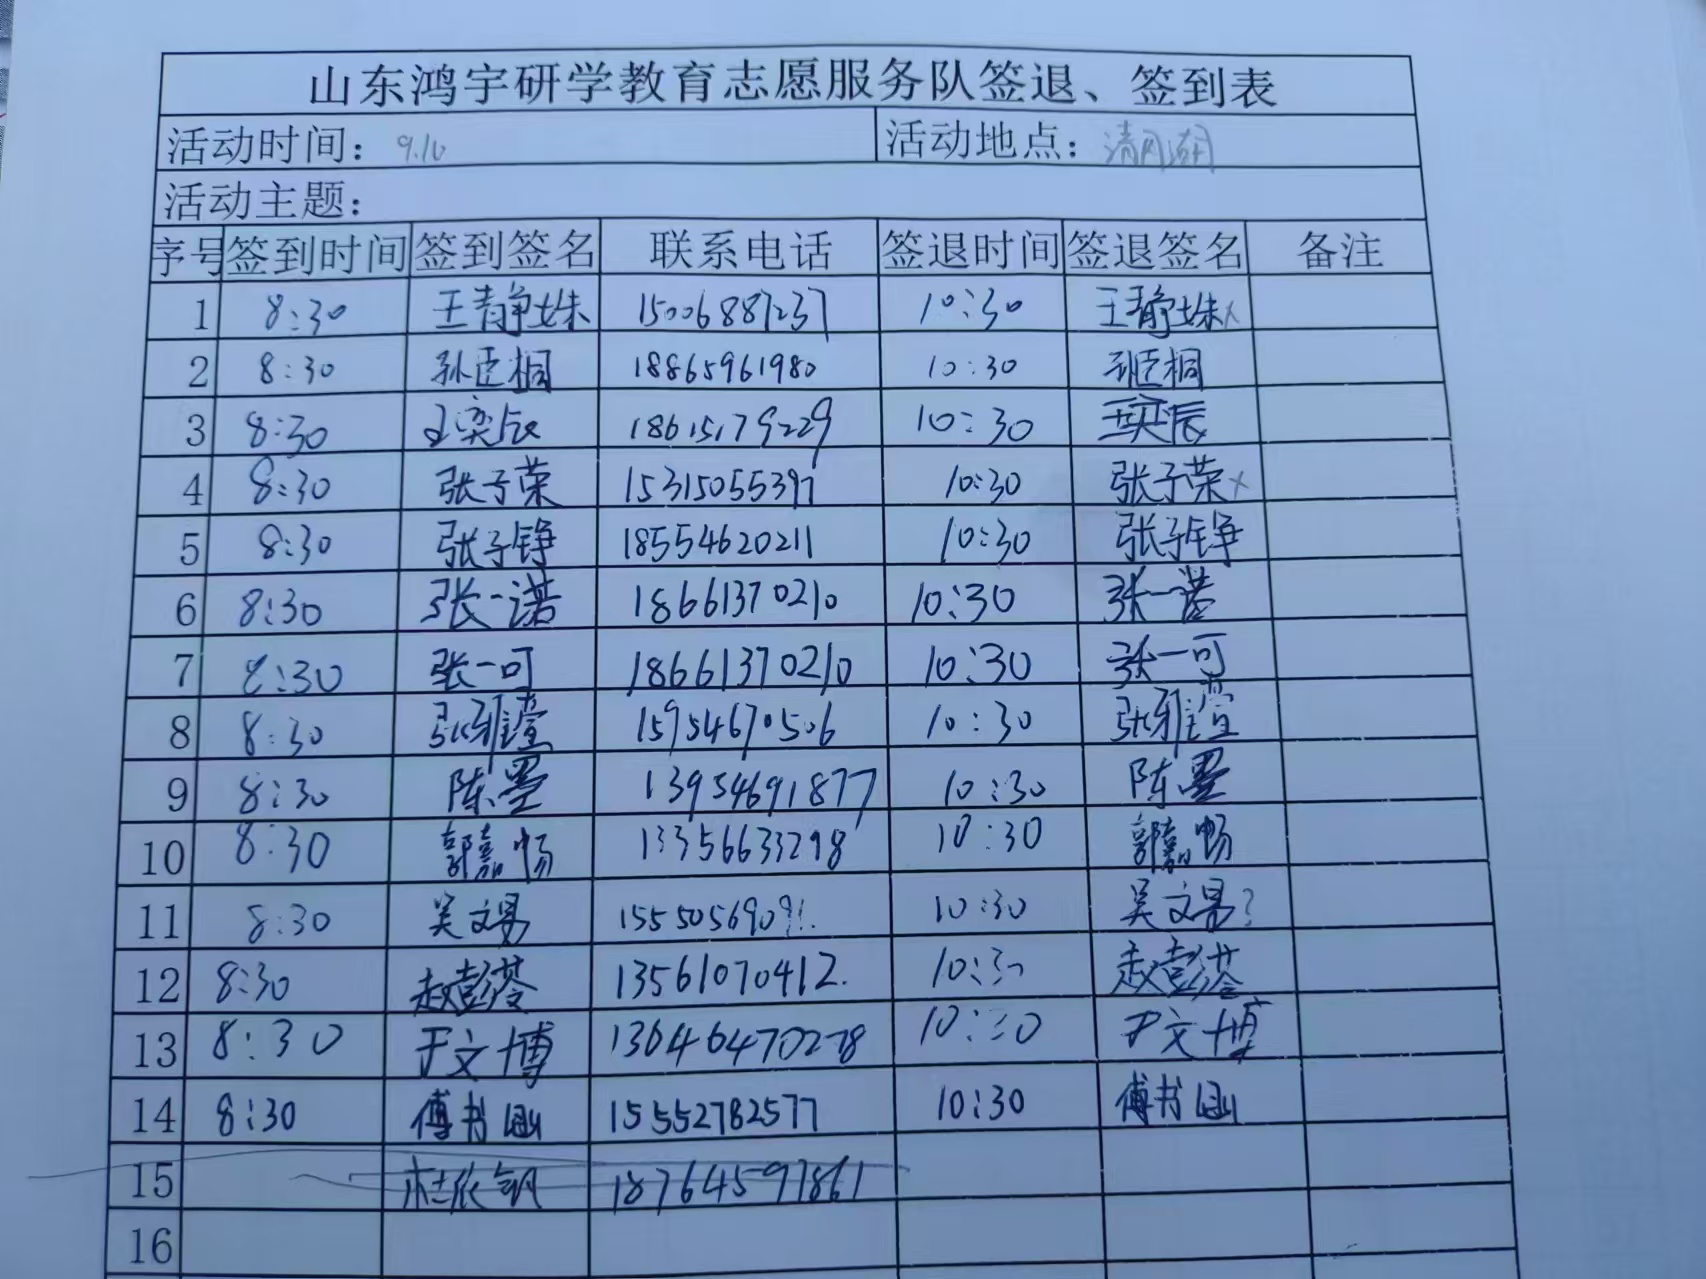 山东鸿宇研学教育志愿服务队签退、签到表
活动时间：9.10 活动地点：清风湖
活动主题：
序号 签到时间 签到签名 联系电话 签退时间 签退签名 备注
1 8:30 王静姝 15006887237 10:30 王静姝 x
2 8:30 孙臣桐 18865961980 10:30 孙臣桐
3 8:30 王奕辰 18615179229 10:30 王奕辰
4 8:30 张子荣 15315055397 10:30 张子荣 x
5 8:30 张子铮 18554620211 10:30 张子铮
6 8:30 张一诺 18661370210 10:30 张一诺
7 8:30 张一可 18661370210 10:30 张一可
8 8:30 张雅萱 15954670506 10:30 张雅萱
9 8:30 陈墨 13954691877 10:30 陈墨
10 8:30 郭嘉畅 13356633298 10:30 郭嘉畅
11 8:30 吴文易 10:30 吴文易?
12 8:30 赵彭荟 13561070412. 10:30 赵彭荟
13 8:30 于文博 13646470278 10:30 于文博
14 8:30 傅书涵 15552782577 10:30 傅书涵
15 杜依钒 18764597861
16